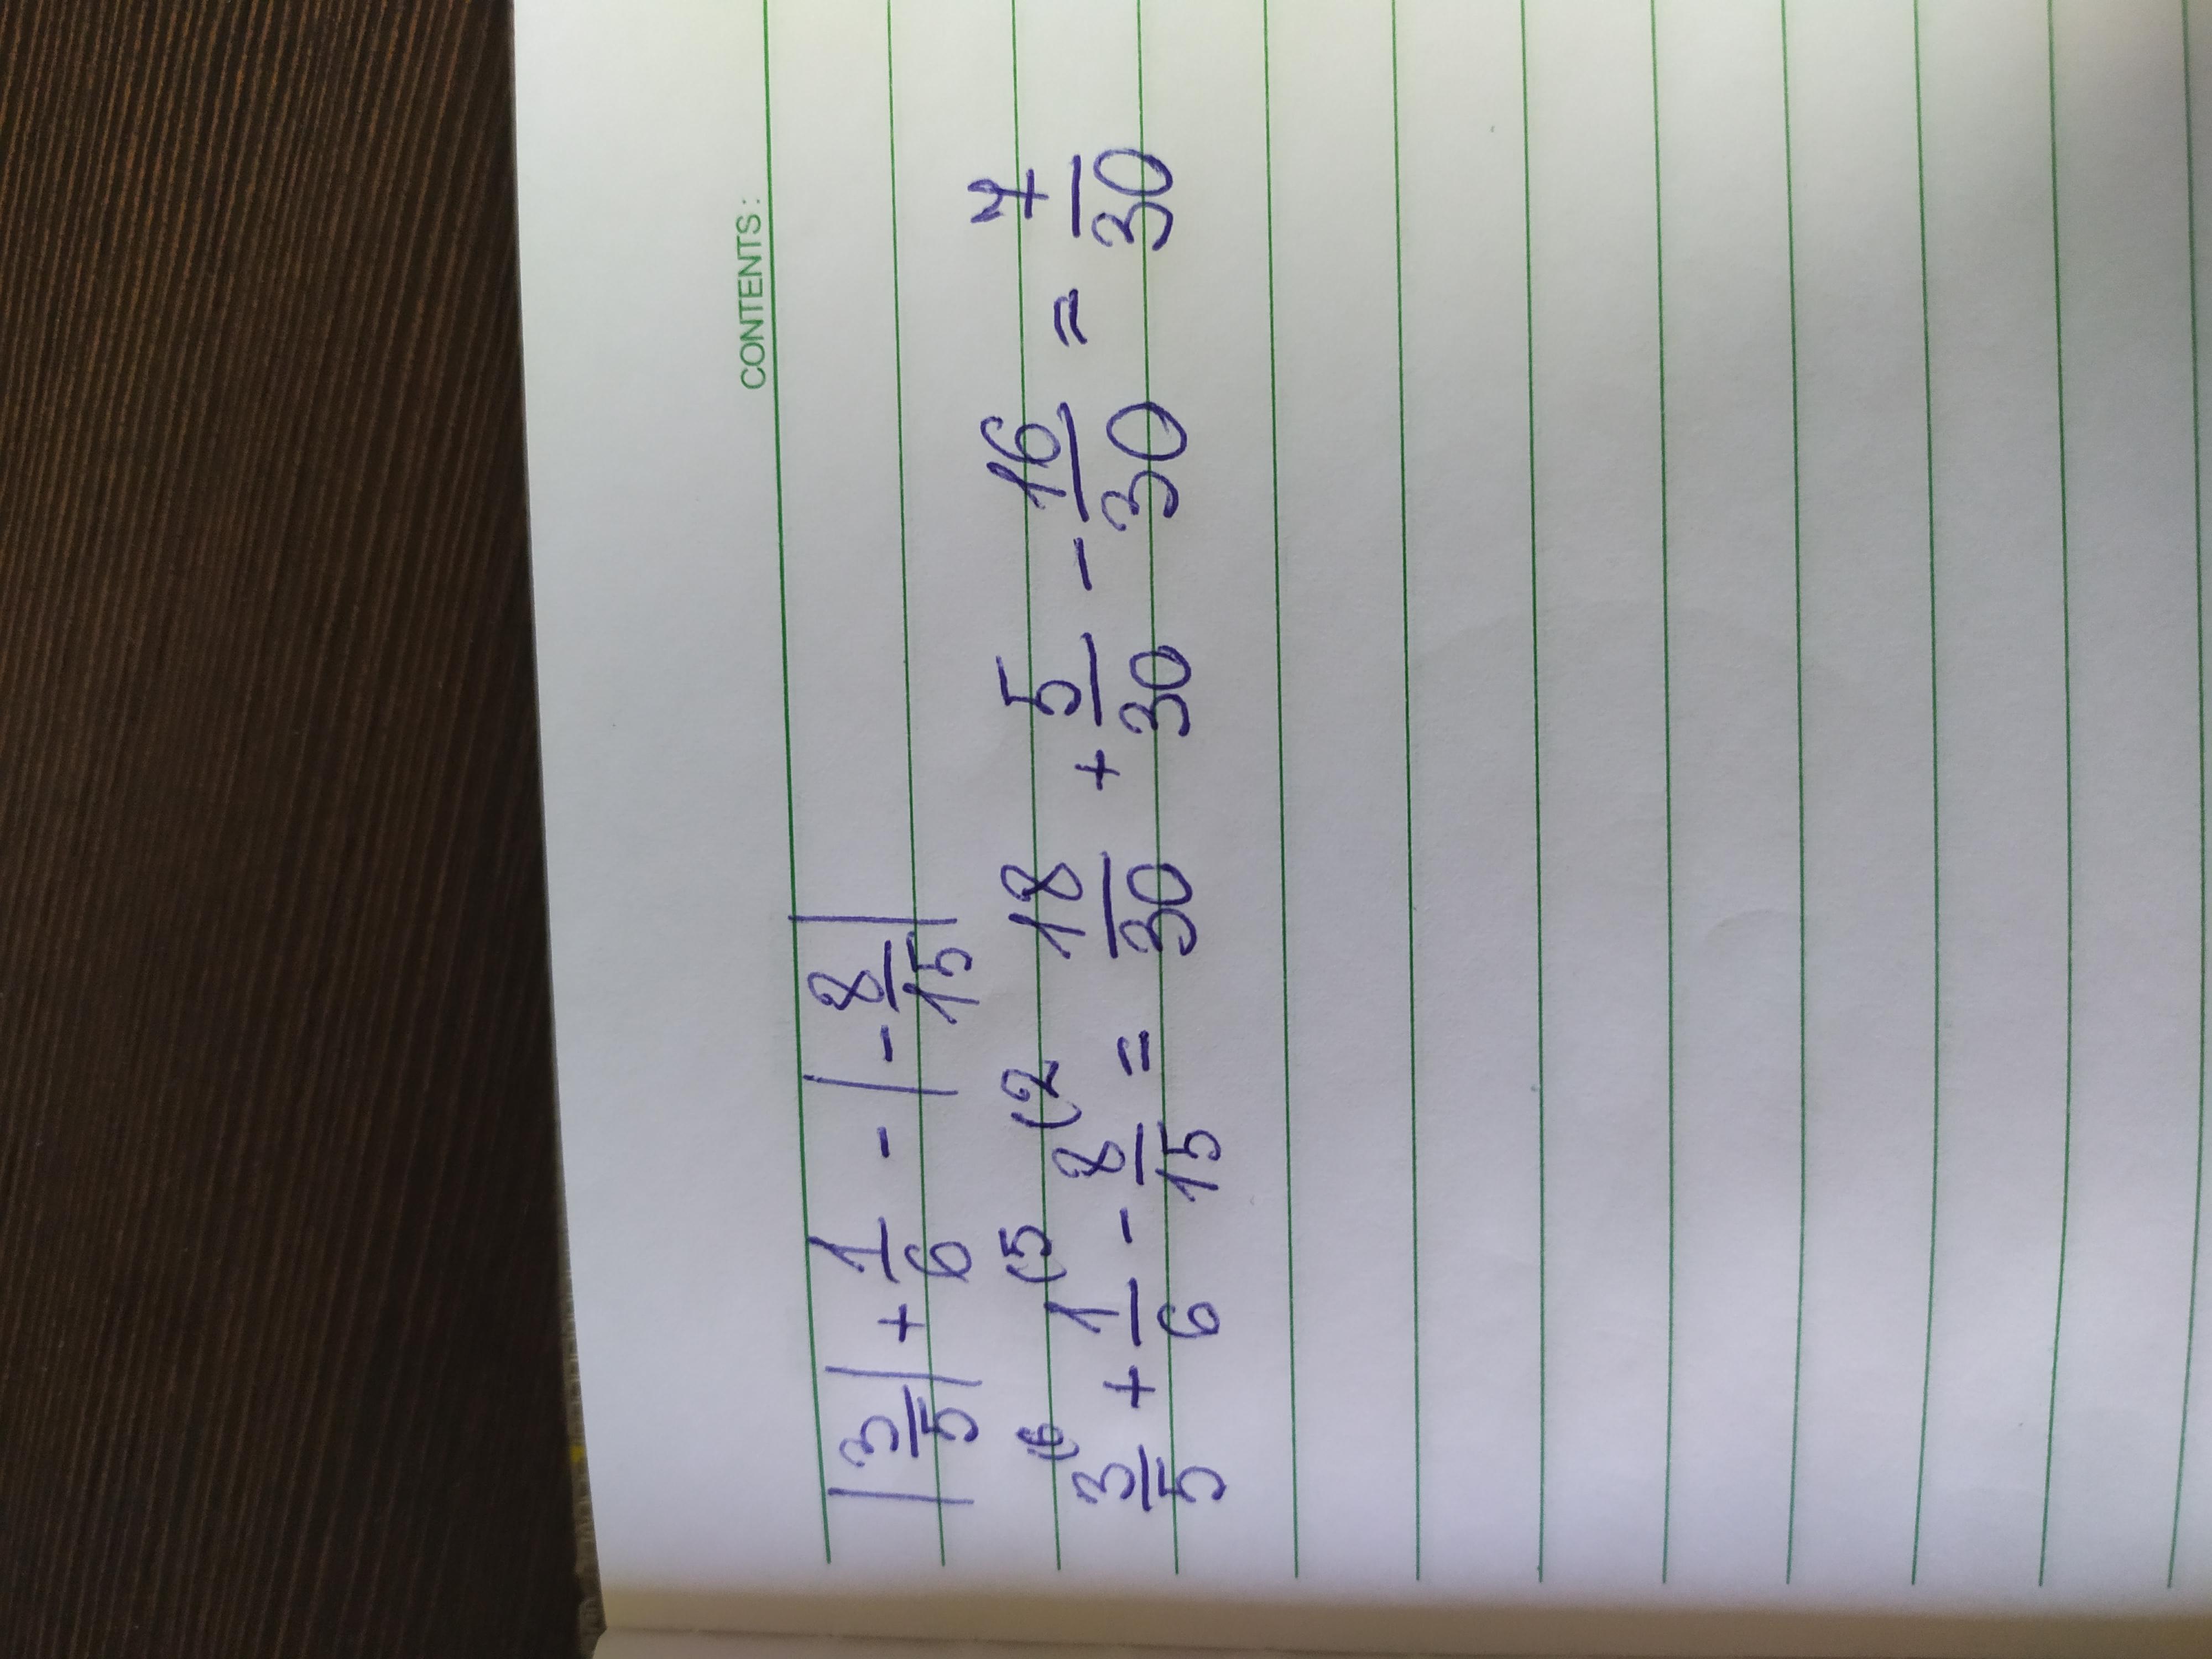 CONTENTS:
|3/5| + 1/6 - |-8/15|
3/5 (6 + 1/6 (5 - 8/15 (2 = 18/30 + 5/30 - 16/30 = 7/30